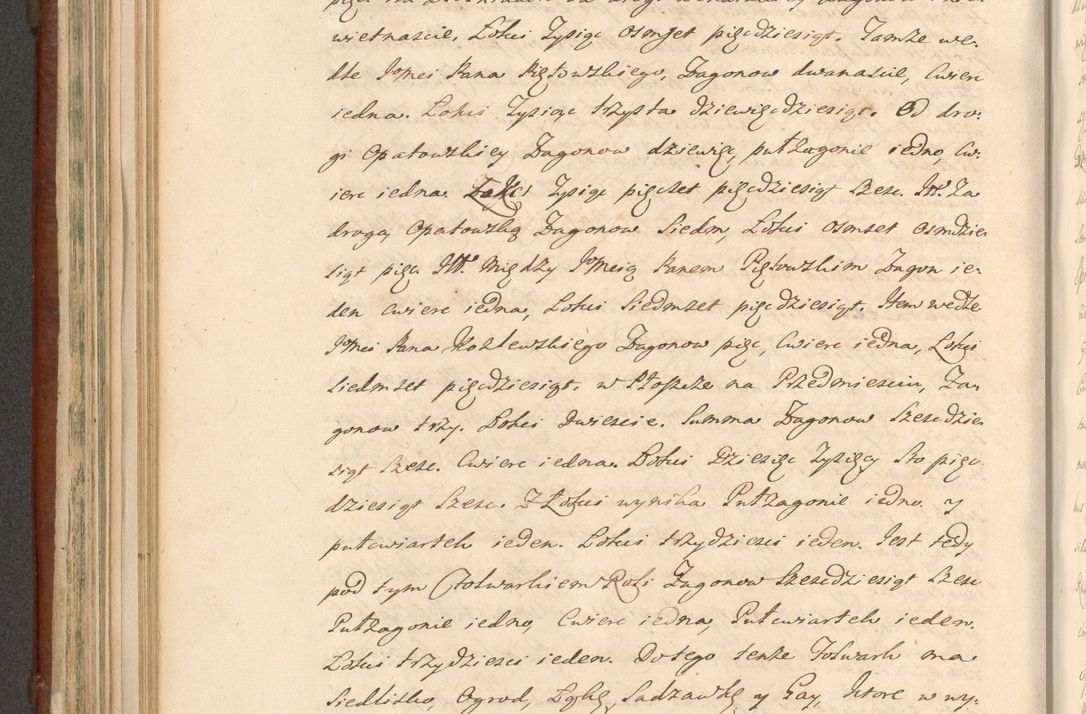 wietnascie, Łokci Tysiąc osmset pięcdziesiąt. Tamże we-
dle Jmci Pana Piętowskiego, Zagonow dwanascie, cwierc
iedna. Łokci Tysiąc trzysta dziewięcdziesiąt. Od dro-
gi Opatowskiey Zagonow dziewięc, putzagonie iedno, Cw-
ierc iedna. Łokci Tysiąc pięcset pięcdziesiąt szesc. Itt. Za
drogą Opatowską Zagonow Siedm, Łokci osmset osmdzie-
siąt pięc Itt. Między Jmcią Panem Piętowskim Zagon ie-
den cwierc iedna, Łokci Siedmset pięcdziesiąt. Item wedle
Jmci Pana Kozlewskiego Zagonow pięc, Cwierc iedna, Łokci
siedmset pięcdziesiąt. w na Przedmiesciu, Za-
gonow trzy. Łokci Dwiescie. Summa Zagonow Szescdzie-
siąt Szesc. Cwierc iedna. Łokci Dziesięc Tysięcy Sto pięc-
dziesiąt Szesc. Z Łokci wynika Putzagonie iedno. y
putcwiartek ieden. Łokci trzydziesci ieden. Jest tedy
pod tym Folwarkiem Roli Zagonow Szescdziesiąt Szesc
Putzagonie iedno, Cwierc iedna, Putcwiartek ieden.
Łokci trzydziesci ieden. Do tego tenże Folwark ma
Siedlisko, Ogrod, Łąkę, Sadzawkę y Gay, ktore w wy-